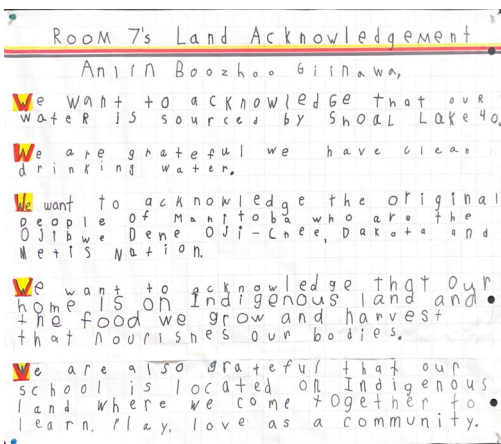 Room 7's Land Acknowledgement
Aniin Boozhoo Giinawa,
We want to acknowledge that our
water is sourced by Shoal Lake 40.
We are grateful we have clean
drinking water.
We want to acknowledge the original
people of Manitoba who are the
Ojibwe Dene Oji-Cree, Dakota and
Metis Nation.
We want to acknowledge that our
home is on Indigenous land and
the food we grow and harvest
that nourishes our bodies.
We are also grateful that our
school is located on Indigenous
land where we come together to
learn, play, love as a community.